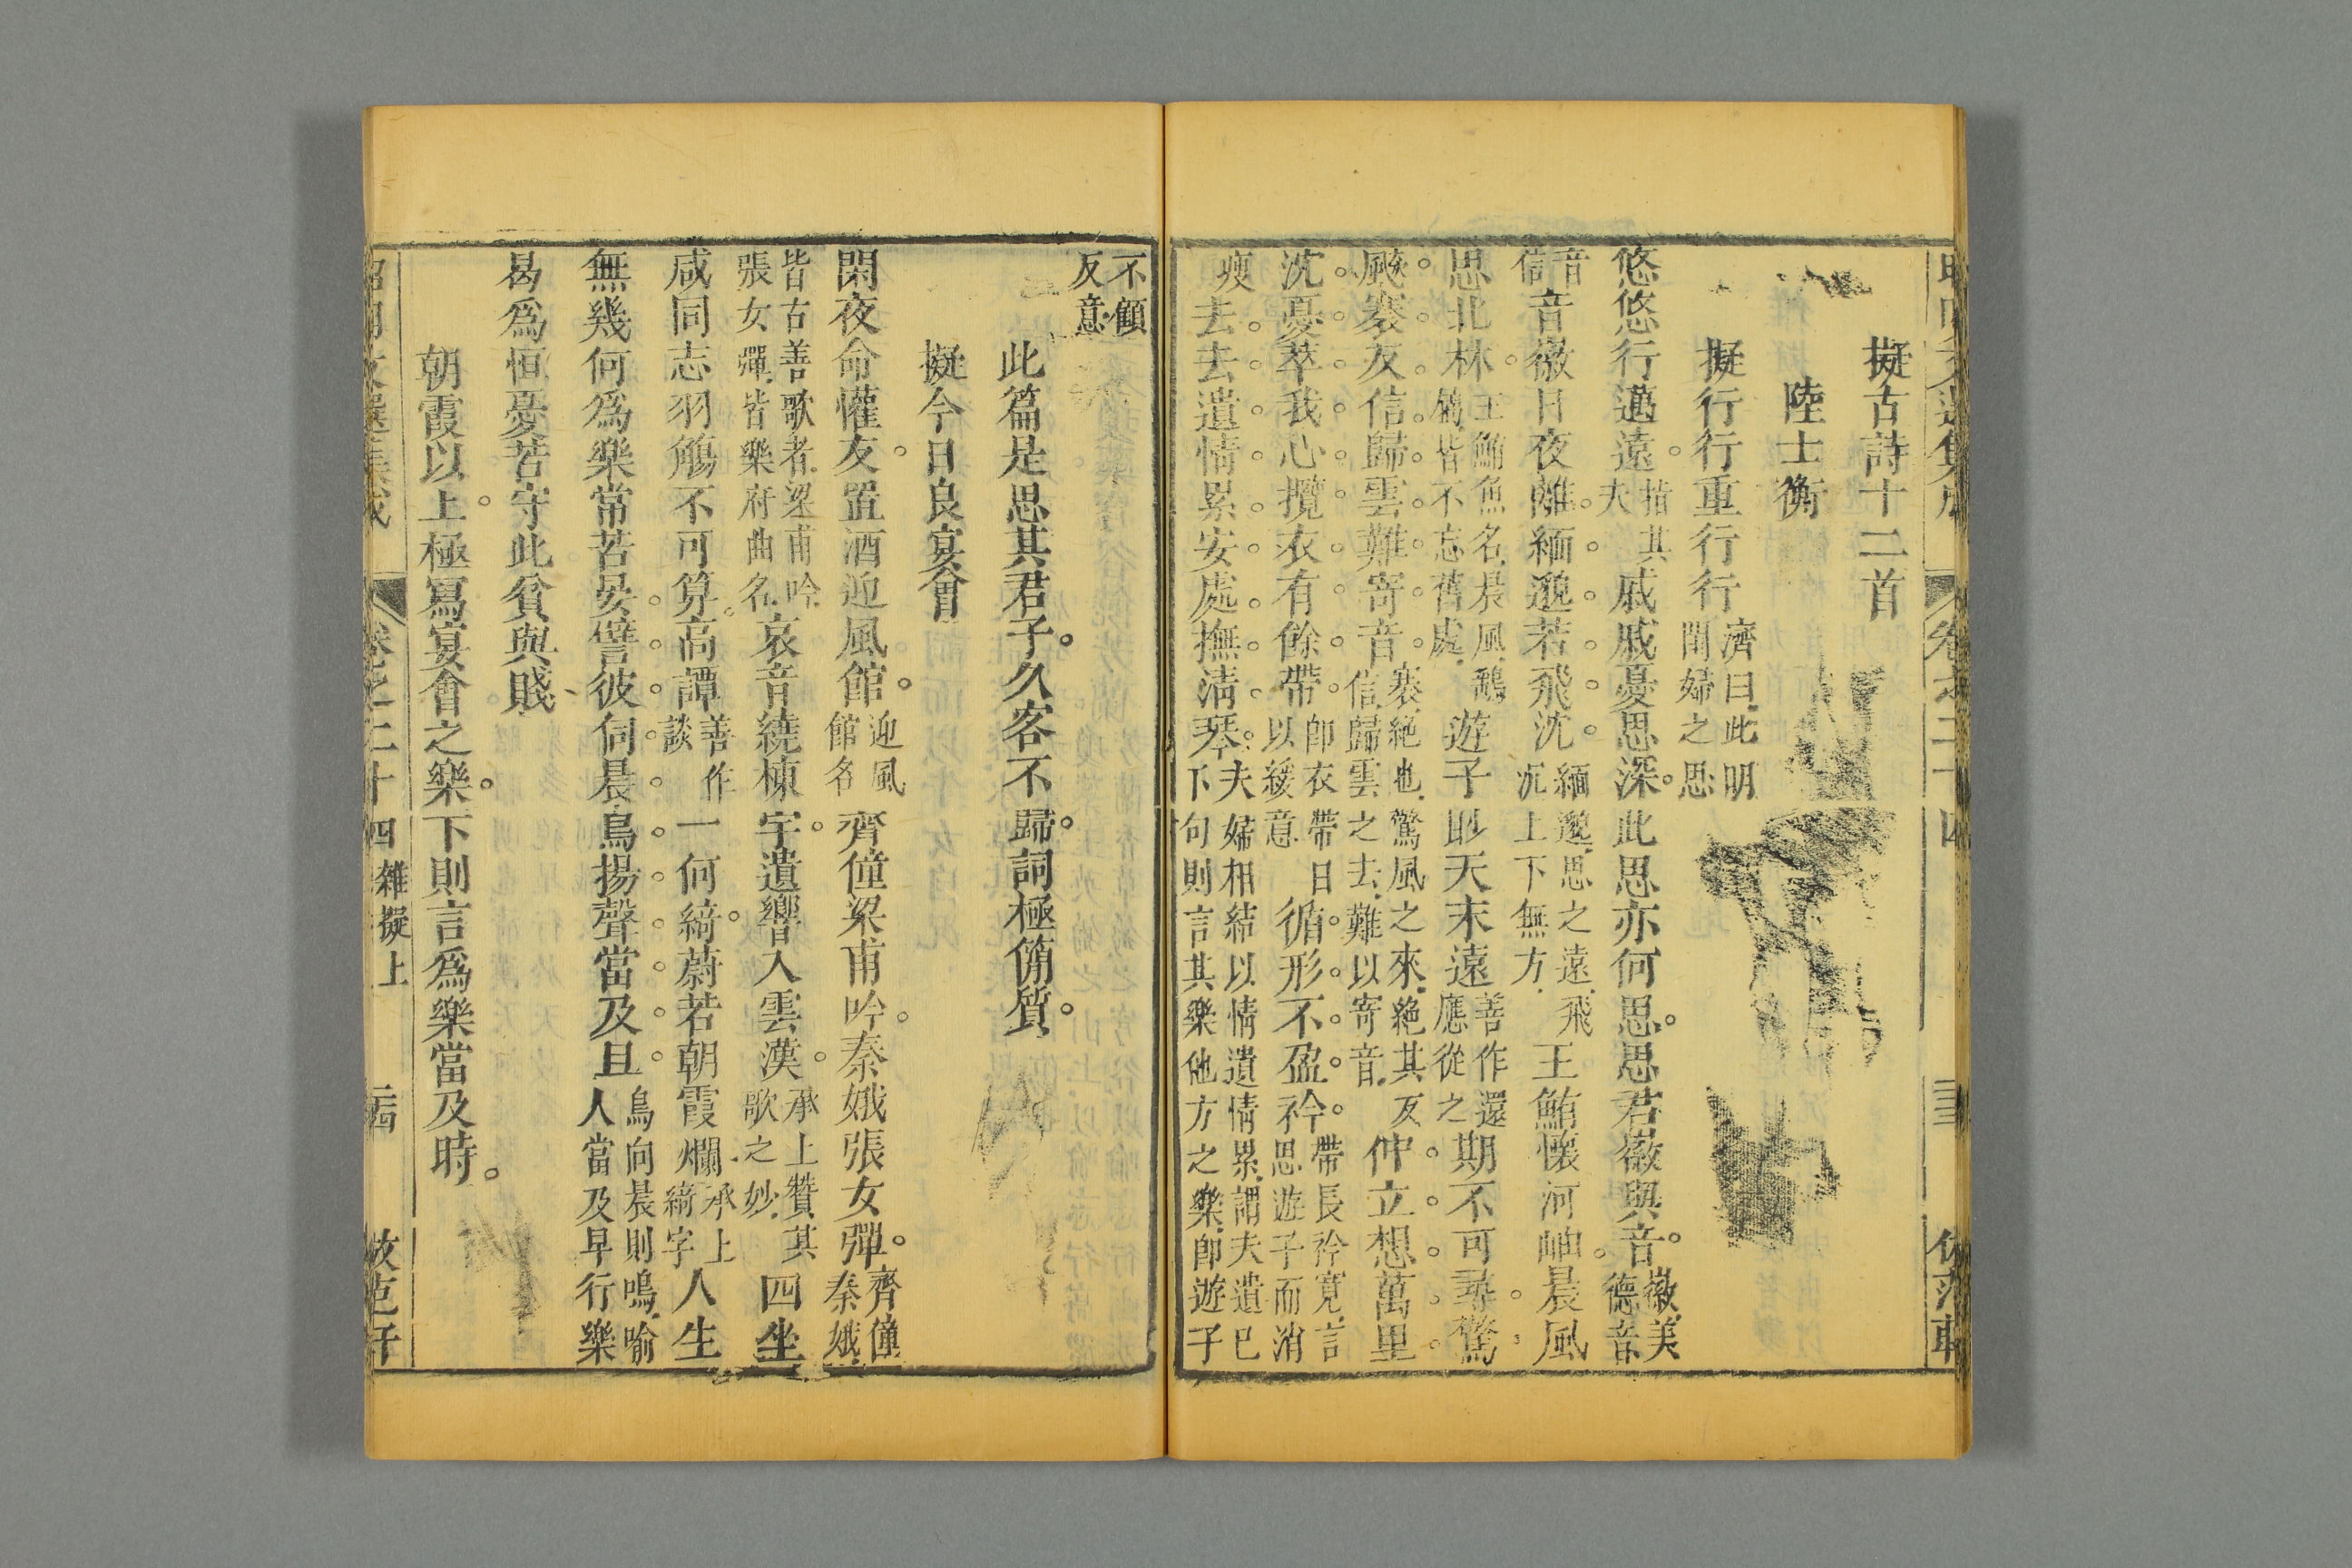 擬古詩十二首
陸士衡
擬行行重行行 濟曰此明閨婦之思
悠悠行邁遠 指其夫 戚戚憂思深此思亦何思思君徽與音 徽美德音
音 音徽日夜離緬邈若飛沈 緬邈思之遠飛沉上下無方 王鮪懷河岫晨風
思北林 王鮪魚名晨風鷂皆不忘舊處 遊子眇天末遠 善作還應從之 期不可尋驚
飈褰友信歸雲難寄音 褰絕也驚風之來絕其友信歸雲之去難以寄音 仲立想萬里
沈憂萃我心攬衣有餘帶 卽衣帶日以緩意 循形不盈衿 帶長衿寬言思遊子而消
瘦 去去遺情累安處撫淸琴 夫婦相結以情遺情累謂夫遺已下句則言其樂他方之樂卽遊子
不顧反意
此篇是思其君子久客不歸詞極脩質
擬今日良宴會
閑夜命懽友置酒迎風館 迎風館名 齊僮梁甫吟秦娥張女彈 齊僮秦娥
皆古善歌者梁甫吟張女彈皆樂府曲名 哀音繞棟宇遺響入雲漢 承上贊其歌之妙 四坐
咸同志羽觴不可算高譚 善作談 一何綺蔚若朝霞爛 承上綺字 人生
無幾何爲樂常苦晏譬彼伺晨鳥揚聲當及旦 鳥向晨則鳴喻人當及早行樂
曷爲恒憂苦守此貧與賤
朝霞以上極寫宴會之樂下則言爲樂當及時
卷之二十四 雜擬上